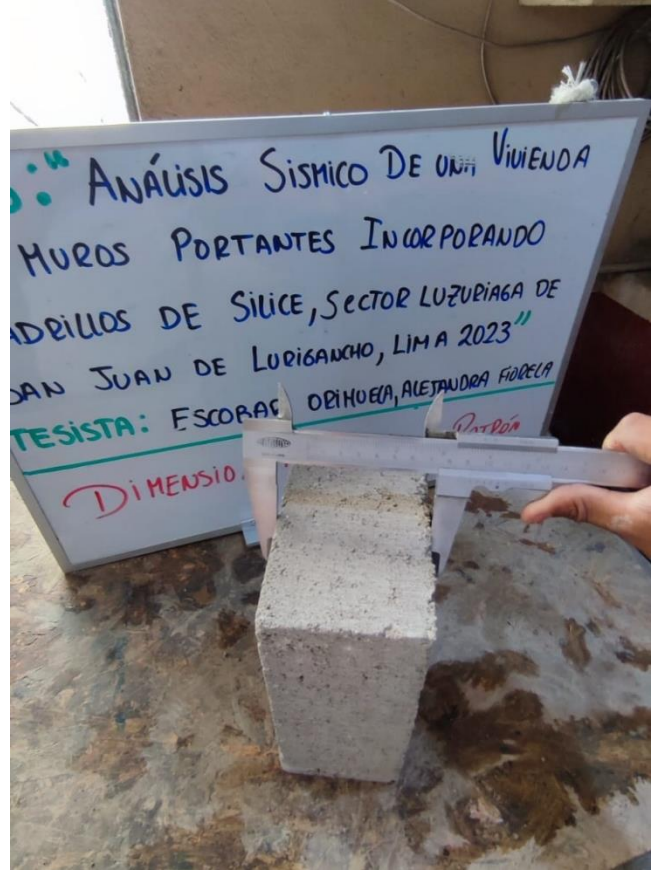 : " ANÁLISIS SISMICO DE UNA VIVIENDA
MUROS PORTANTES INCORPORANDO
ADRILLOS DE SILICE, SECTOR LUZURIAGA DE
SAN JUAN DE LURIGANCHO, LIMA 2023"
TESISTA: ESCOBAR ORIHUELA, ALEJANDRA FIORELA
PATRÓN
DIMENSIO